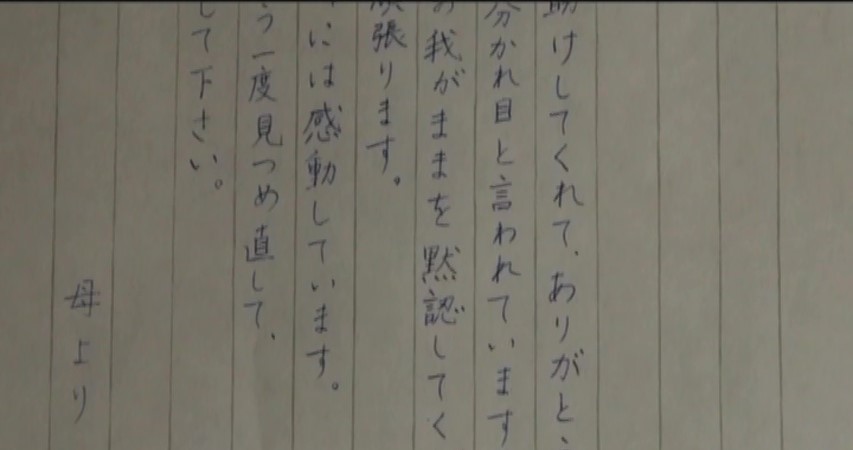 助けしてくれて、ありがと、
分かれ目と言われています
の我がままを黙認してく
頑張ります。
には感動しています。
う一度見つめ直して、
して下さい。
母より